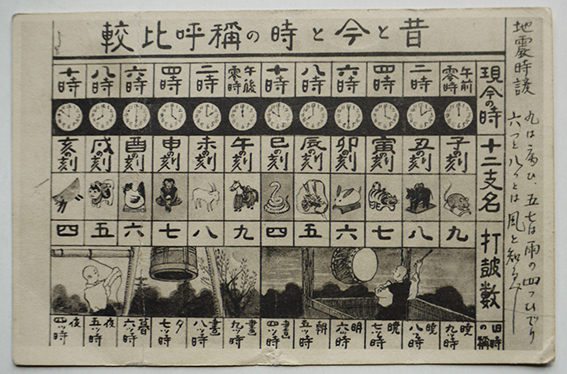 昔と今と時の稱呼比較
現今の時
午前零時
二時
四時
六時
八時
十時
午後零時
二時
四時
六時
八時
十時
十二支名
子の刻
丑の刻
寅の刻
卯の刻
辰の刻
巳の刻
午の刻
未の刻
申の刻
酉の刻
戌の刻
亥の刻
打鼓數
九
八
七
六
五
四
九
八
七
六
五
四
旧時の稱
暁九ツ時
暁八ツ時
暁七ツ時
明六ツ時
朝五ツ時
晝四ツ時
晝九ツ時
晝八ツ時
夕七ツ時
暮六ツ時
夜五ツ時
夜四ツ時
地震時諺
九は病ひ、五七は雨の四つひでり
六つと八つとは風と知るべし